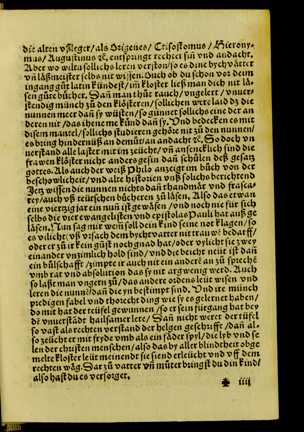 die alten vßleger / als Origenes / Crisostomus / Hierony-
mus / Augustinus ꝛc̃. entspringt rechter sin̄ vnd andacht.
Aber wo wilt a sollichs leren verston / so es dine bychtvätter
vn̄ läßmeister selbs nit wissen. Ouch ob du schon vor dem
ingang gůt latin kündest / im̄ kloster ließ man dich nit lä-
sen gůte bücher. San man thůt rauch / ungelert / vnuer-
stendig münch zů den klöstern / sollichen were laid dz die
nunnen meer dan̄ sy wüsten / so günnet sollichs eine der an
deren nit / das ir ene mer kund dan̄ sy. Vnd bedeckes es mit
disem mantel / sollichs studieren gehöre nit zů den nunnen /
es bring hindernuß an demůt an andacht ꝛc̃. So doch vn
uerstand alle laster mit im zücht / vn̄ ansencklich sind die
frawen klöster nicht anders gesin dan̄ schůlen deß gesatz
gottes. Als auch der weiß Philo anzeigt im bůch von der
beschowlicheit / vnd alte historien vnß solichs berichtend
Jetz wissen die nunnen nichts dan̄ thandmär vnd frasca-
rey / auch vß teütschen büchern zů läsen. Also das etwan
eine viertzig jar ein nun̄ ist gewäsen / vnd noch nie für sich
selbs die vier euangelisten vnd epistolas Pauli hat auß ge
läsen. Nun sag mir wem̄ soll dein kind seine not klagen / so
es vilicht vß vysach dem bychtvatter nit truwe bedarff /
oder er ist ir kein günst noch gnad hat / oder vylicht sie zwey
einander vnzimlich hold sind / vnd der beichet neit ist dan̄
ein bůlschafft / gimpt ir auch nit ein ander an zů sprechē
vmb rat vnd absolution das sy nit argwenig werd. Auch
so laßt man vngern zů / das andere ordens leüt wisen vnd
leren die nunnē / dan̄ die yn bestimpt sind. Vnd ir münch
predigen fabel vnd thorecht ding wie sy es gelernet haben /
do mit hat der teüfel gewunnen / so er sein ziegang hat bey
dē vnuerstād heilsamer lere. San̄ nicht weret der tüfel
so vast als rechten verstand der helgen geschrifft / dan̄ al-
so zeücht er mit freyde vmb als ein fäder spyl / die lyb vnd se
len der christen menschen / also das by aller blindtheit obge
melte kloster leüt meinendt sie siend erleücht vnd vff dem
rechten wäg. Sar zů vatter vn̄ můter bringst du din kind /
also hast du es versorget.
iiij